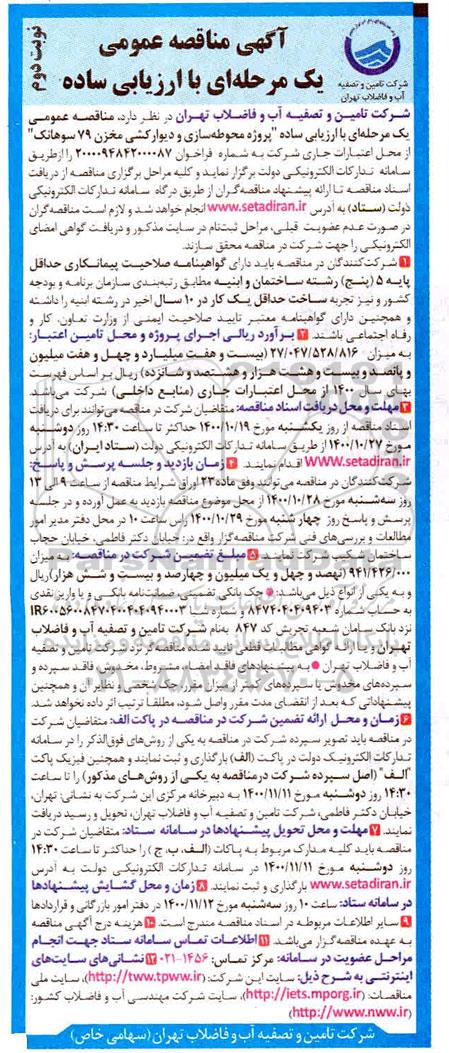 نوبت دوم
آگهی مناقصه عمومی
یک مرحله‌ای با ارزیابی ساده
شرکت تامین و تصفیه
آب و فاضلاب تهران
شرکت تامین و تصفیه آب و فاضلاب تهران در نظر دارد، مناقصه عمومی
یک مرحله‌ای با ارزیابی ساده "پروژه محوطه‌سازی و دیوارکشی مخزن ۷۹ سوهانک"
از محل اعتبارات جاری شرکت به شماره فراخوان ۲۰۰۰۰۹۴۸۴۲۰۰۰۰۸۷ را از طریق
سامانه تدارکات الکترونیکی دولت برگزار نماید و کلیه مراحل برگزاری مناقصه از دریافت
اسناد مناقصه تا ارائه پیشنهاد مناقصه‌گران از طریق درگاه سامانه تدارکات الکترونیکی
دولت (ستاد) به آدرس www.setadiran.ir انجام خواهد شد و لازم است مناقصه‌گران
در صورت عدم عضویت قبلی، مراحل ثبت‌نام در سایت مذکور و دریافت گواهی امضای
الکترونیکی را جهت شرکت در مناقصه محقق سازند.
۱ شرکت‌کنندگان در مناقصه باید دارای گواهینامه صلاحیت پیمانکاری حداقل
پایه ۵ (پنج) رشته ساختمان و ابنیه مطابق رتبه‌بندی سازمان برنامه و بودجه
کشور و نیز تجربه ساخت حداقل یک کار در ۱۰ سال اخیر در رشته ابنیه را داشته
و همچنین دارای گواهینامه معتبر تایید صلاحیت ایمنی از وزارت تعاون، کار و
رفاه اجتماعی باشند. ۲ برآورد ریالی اجرای پروژه و محل تامین اعتبار:
به میزان ۲۷/۰۴۷/۵۲۸/۸۱۶ (بیست و هفت میلیارد و چهل و هفت میلیون
و پانصد و بیست و هشت هزار و هشتصد و شانزده) ریال بر اساس فهرست
بهای سال ۱۴۰۰ از محل اعتبارات جاری (منابع داخلی) شرکت می‌باشد.
۳ مهلت و محل دریافت اسناد مناقصه: متقاضیان شرکت در مناقصه می‌توانند برای دریافت
اسناد مناقصه از روز یکشنبه مورخ ۱۴۰۰/۱۰/۱۹ حداکثر تا ساعت ۱۴:۳۰ روز دوشنبه
مورخ ۱۴۰۰/۱۰/۲۷ از طریق سامانه تدارکات الکترونیکی دولت (ستاد ایران) به آدرس
www.setadiran.ir اقدام نمایند. ۴ زمان بازدید و جلسه پرسش و پاسخ:
شرکت‌کنندگان در مناقصه می‌توانند وفق ماده ۲۳ اوراق شرایط مناقصه از ساعت ۹ الی ۱۳
روز سه‌شنبه مورخ ۱۴۰۰/۱۰/۲۸ از محل موضوع مناقصه بازدید به عمل آورده و در جلسه
پرسش و پاسخ روز چهارشنبه مورخ ۱۴۰۰/۱۰/۲۹ راس ساعت ۱۰ در محل دفتر مدیر امور
مطالعات و بررسی‌های فنی شرکت مناقصه‌گزار واقع در: خیابان دکتر فاطمی، خیابان حجاب
ساختمان شکیب شرکت نمایند. ۵ مبلغ تضمین شرکت در مناقصه: به میزان
۹۴۱/۴۲۶/۰۰۰ (نهصد و چهل و یک میلیون و چهارصد و بیست و شش هزار) ریال
و به یکی از انواع ذیل می‌باشد: ● چک بانکی تضمینی، ضمانت‌نامه بانکی و یا واریز نقدی
به حساب شماره و شماره شبا
نزد بانک سامان شعبه تجریش کد ۸۴۷ به‌نام شرکت تامین و تصفیه آب و فاضلاب
تهران و یا ارائه گواهی مطالبات قطعی تایید شده مناقصه‌گر نزد شرکت تامین و تصفیه
آب و فاضلاب تهران ● به پیشنهادهای فاقد امضاء، مشروط، مخدوش، فاقد سپرده و
سپرده‌های مخدوش یا سپرده‌های کمتر از میزان مقرر، چک شخصی و نظایر آن و همچنین
پیشنهاداتی که بعد از انقضای مدت مقرر واصل شود، مطلقا ترتیب اثر داده نخواهد شد.
۶ زمان و محل ارائه تضمین شرکت در مناقصه در پاکت الف: متقاضیان شرکت
در مناقصه باید تصویر سپرده شرکت در مناقصه به یکی از روش‌های فوق‌الذکر را در سامانه
تدارکات الکترونیک دولت در پاکت (الف) بارگذاری و ثبت نمایند و همچنین فیزیک پاکت
"الف" (اصل سپرده شرکت در مناقصه به یکی از روش‌های مذکور) را تا ساعت
۱۴:۳۰ روز دوشنبه مورخ ۱۴۰۰/۱۱/۱۱ به دبیرخانه مرکزی این شرکت به نشانی: تهران،
خیابان دکتر فاطمی، شرکت تامین و تصفیه آب و فاضلاب تهران، تحویل و رسید دریافت
نمایند. ۷ مهلت و محل تحویل پیشنهادها در سامانه ستاد: متقاضیان شرکت در
مناقصه باید کلیه مدارک مربوط به پاکات (الف، ب، ج) را حداکثر تا ساعت ۱۴:۳۰
روز دوشنبه مورخ ۱۴۰۰/۱۱/۱۱ در سامانه تدارکات الکترونیکی دولت به آدرس
www.setadiran.ir بارگذاری و ثبت نمایند. ۸ زمان و محل گشایش پیشنهادها
در سامانه ستاد: ساعت ۱۰ روز سه‌شنبه مورخ ۱۴۰۰/۱۱/۱۲ در دفتر امور بازرگانی و قراردادها
۹ سایر اطلاعات مربوطه در اسناد مناقصه مندرج است. ۱۰ هزینه درج آگهی مناقصه
به عهده مناقصه‌گزار می‌باشد. ۱۱ اطلاعات تماس سامانه ستاد جهت انجام
مراحل عضویت در سامانه: مرکز تماس: ۱۴۵۶-۰۲۱ ۱۲ نشانی‌های سایت‌های
اینترنتی به شرح ذیل: سایت این شرکت: (http://tww.tpww.ir)، سایت ملی
مناقصات: (http://iets.mporg.ir)، سایت شرکت مهندسی آب و فاضلاب کشور:
(http://www.nww.ir)
شرکت تامین و تصفیه آب و فاضلاب تهران (سهامی خاص)